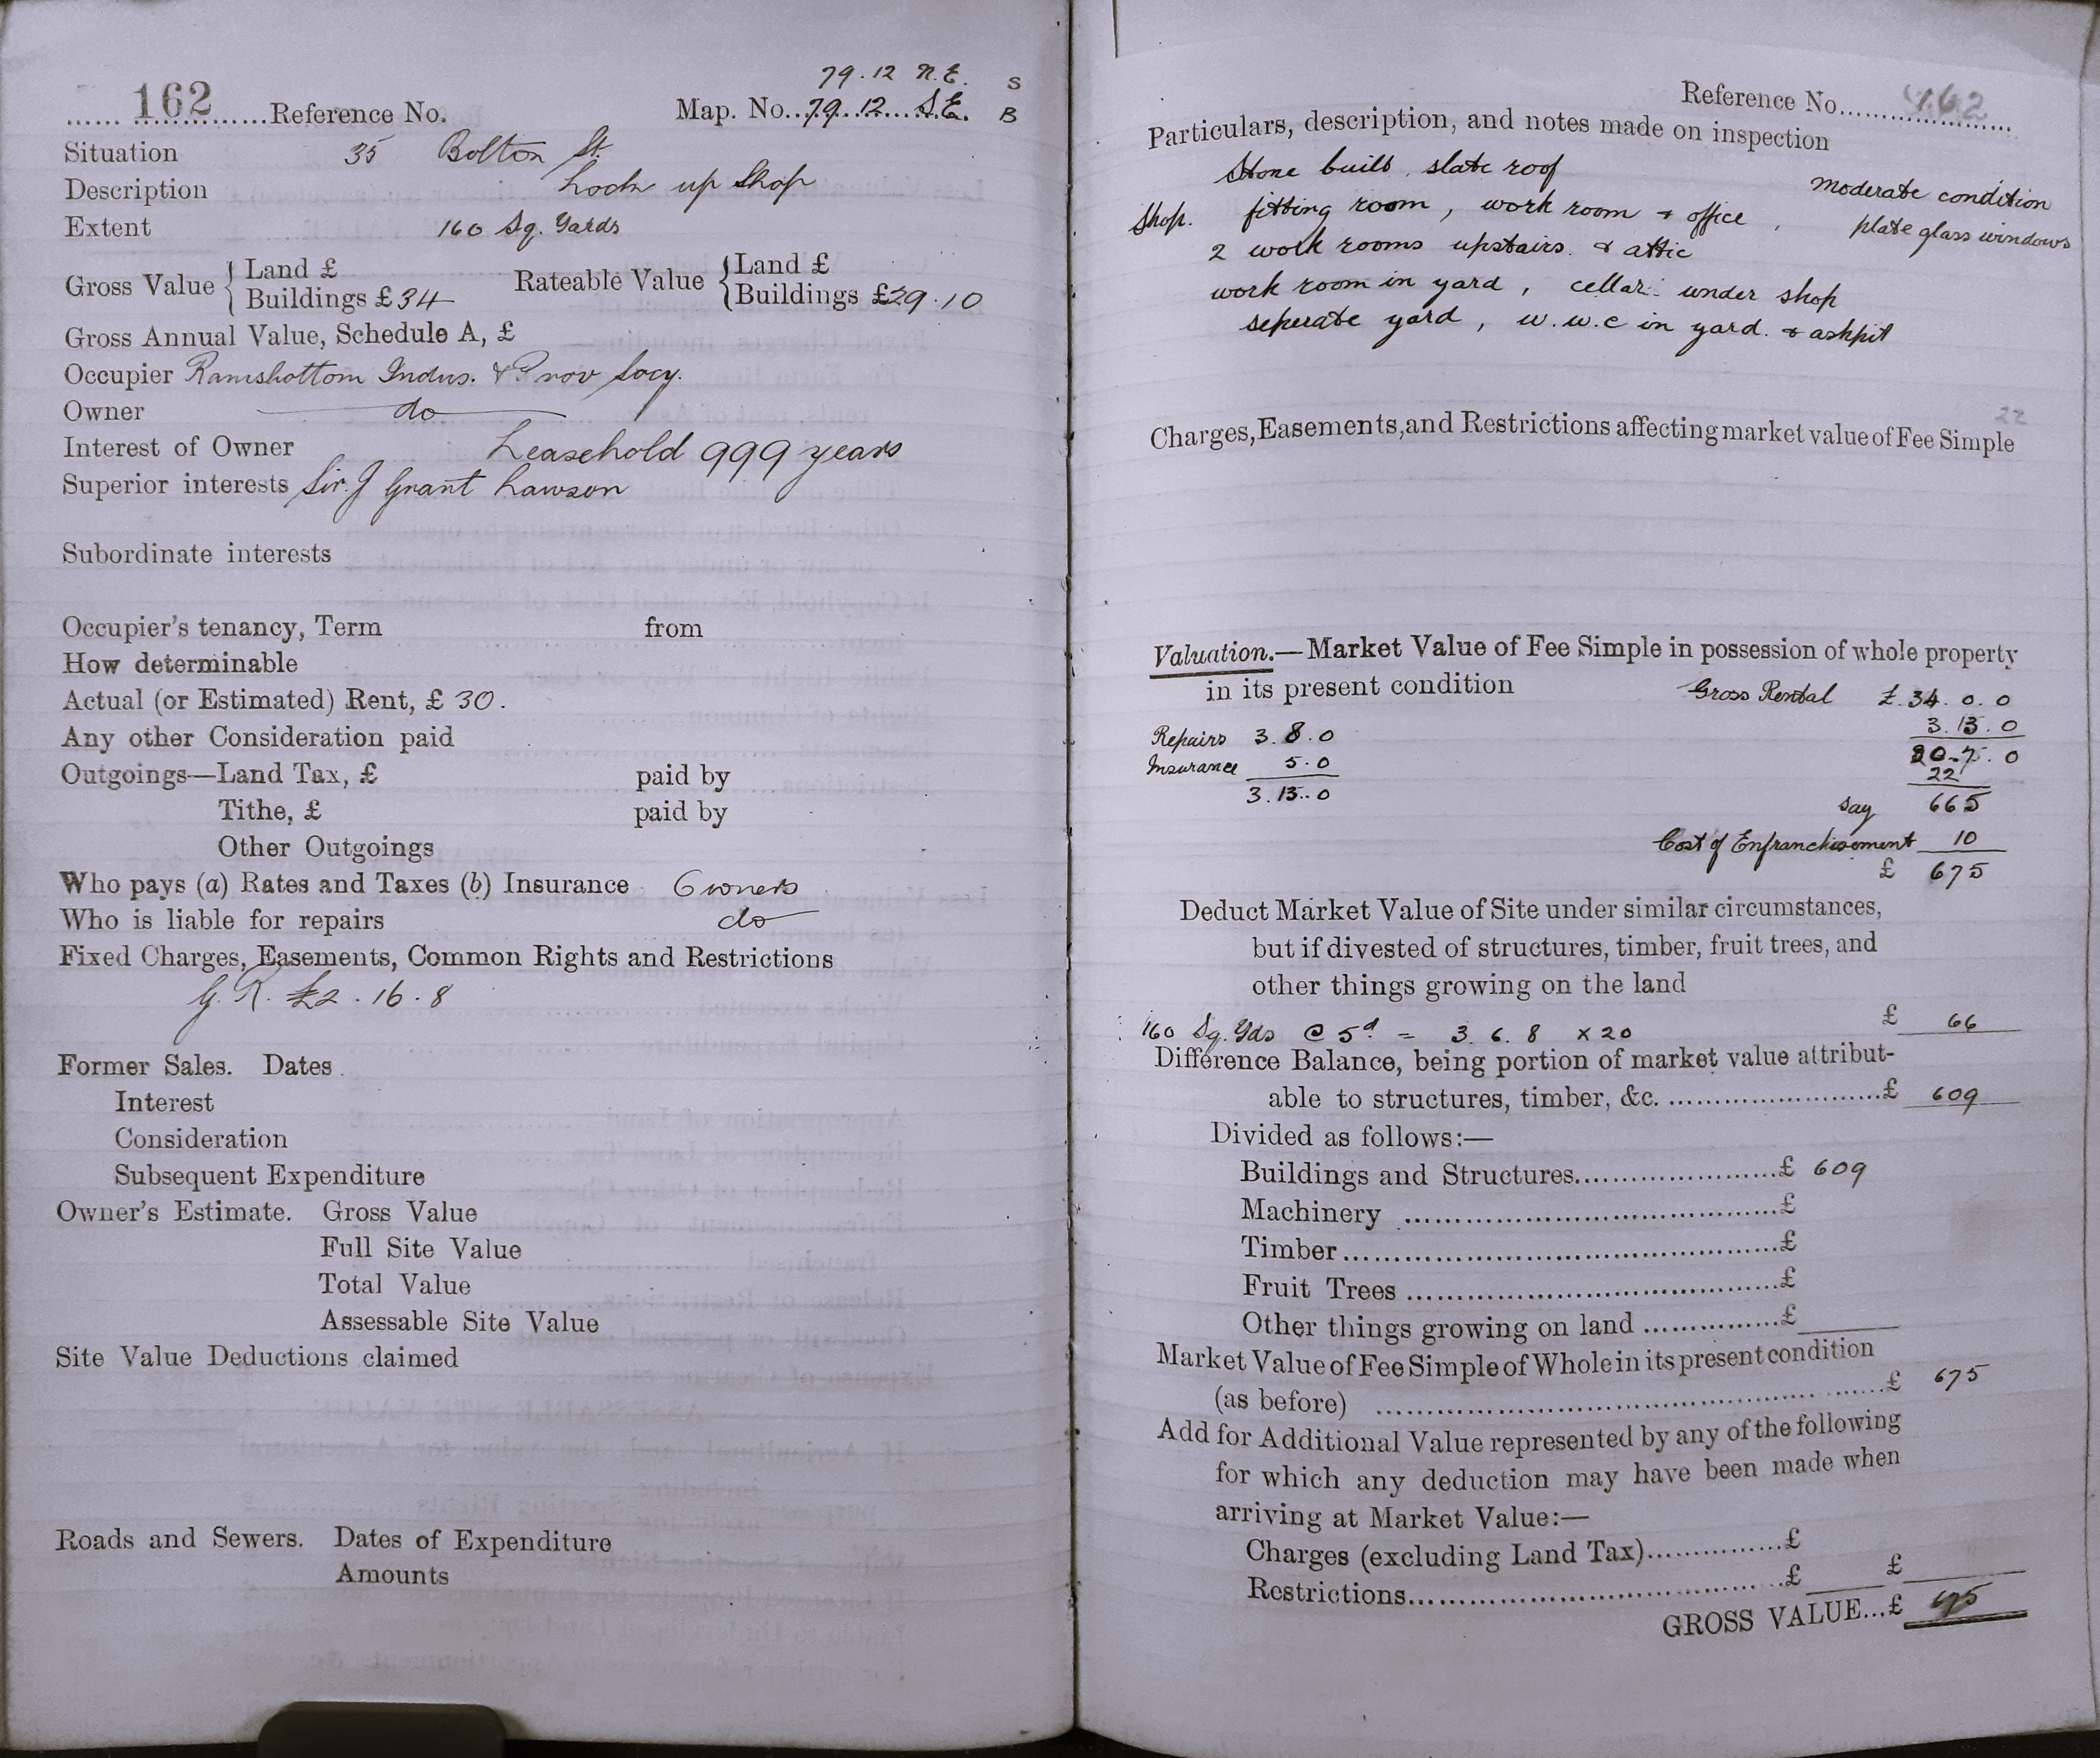 79.12 N.E. S
162 Reference No. Map. No. 79.12 S.E. B
Situation 35 Bolton St.
Description Lock up Shop
Extent 160 Sq. Yards
Gross Value { Land £ Rateable Value { Land £
Buildings £34 Buildings £29.10
Gross Annual Value, Schedule A, £
Occupier Ramsbottom Indus. & Prov Socy.
Owner do
Interest of Owner Leasehold 999 years
Superior interests Sir. J Grant Lawson
Subordinate interests
Occupier's tenancy, Term from
How determinable
Actual (or Estimated) Rent, £ 30.
Any other Consideration paid
Outgoings—Land Tax, £ paid by
Tithe, £ paid by
Other Outgoings
Who pays (a) Rates and Taxes (b) Insurance Owners
Who is liable for repairs do
Fixed Charges, Easements, Common Rights and Restrictions
G. R. £2.16.8
Former Sales. Dates
Interest
Consideration
Subsequent Expenditure
Owner's Estimate. Gross Value
Full Site Value
Total Value
Assessable Site Value
Site Value Deductions claimed
Roads and Sewers. Dates of Expenditure
Amounts
Reference No. 162
Particulars, description, and notes made on inspection
Stone built, slate roof moderate condition
Shop. fitting room, work room & office, plate glass windows
2 work rooms upstairs. & attic
work room in yard, cellar under shop
seperate yard, w.w.c in yard. & ashpit
22
Charges, Easements, and Restrictions affecting market value of Fee Simple
Valuation.—Market Value of Fee Simple in possession of whole property
in its present condition Gross Rental £.34.0.0
Repairs 3.8.0 3.13.0
Insurance 5.0 30.7.0
22
3.13.0 say 665
Cost of Enfranchisement 10
£ 675
Deduct Market Value of Site under similar circumstances,
but if divested of structures, timber, fruit trees, and
other things growing on the land
160 Sq. Yds @ 5d = 3 6. 8 x 20 £ 66
Difference Balance, being portion of market value attribut-
able to structures, timber, &c. £ 609
Divided as follows:—
Buildings and Structures £ 609
Machinery £
Timber £
Fruit Trees £
Other things growing on land £
Market Value of Fee Simple of Whole in its present condition
(as before) £ 675
Add for Additional Value represented by any of the following
for which any deduction may have been made when
arriving at Market Value:—
Charges (excluding Land Tax) £
Restrictions £ £
GROSS VALUE...£ 675